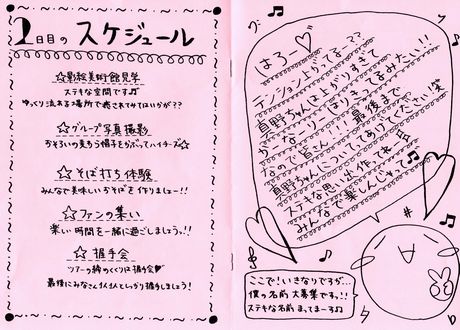 2日目の スケジュール
☆影絵美術館見学
ステキな空間です♫
ゆっくり流れる場所で癒されてみてはいかが??
☆グループ写真撮影
おそろいの麦わら帽子をかぶってハイチーズ☆
☆そば打ち体験
みんなで美味しいおそばを作りましょー!!
☆ファンの集い
楽しい時間を一緒に過ごしましょう♪!!
☆握手会
ツアーの締めくくりは握手会♡
最後にみなさん1人1人としっかり握手しましょう!
はろー♡
テンションよりってるー??
真野ちゃんは上がりすぎて
みたい!!
なので皆さん!!! 最後まで
真野ちゃんについてあげてください 笑
ステキな思い出作れ
みんなで楽しんじゃえ
ここで!いきなりですが…
僕の名前 大募集でっす!!
ステキな名前 まってまーす♫